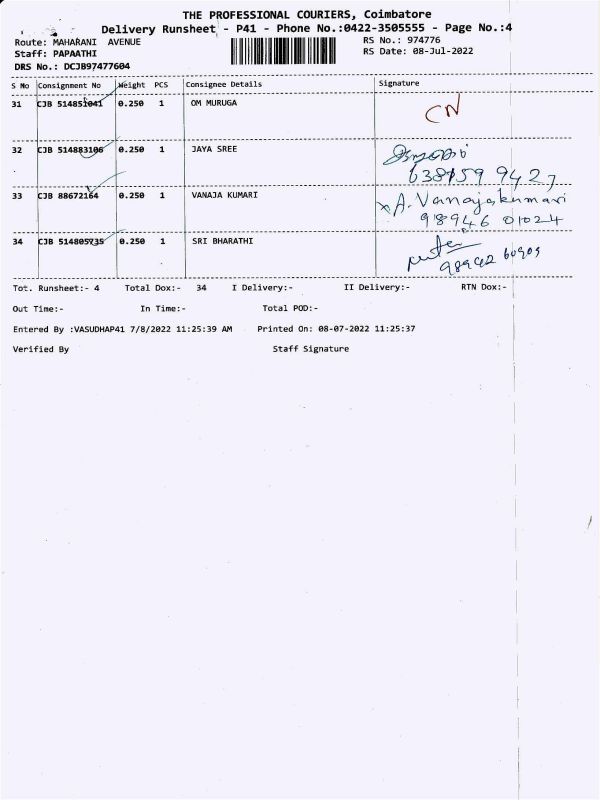 THE PROFESSIONAL COURIERS, Coimbatore
Delivery Runsheet - P41 - Phone No.:0422-3505555 - Page No.:4
Route: MAHARANI AVENUE RS No.: 974776
Staff: PAPAATHI RS Date: 08-Jul-2022
DRS No.: DCJB97477604
S No Consignment No Weight PCS Consignee Details Signature
31 CJB 514851041 0.250 1 OM MURUGA CN
32 CJB 514883106 0.250 1 JAYA SREE
638159 9427
33 CJB 88672164 0.250 1 VANAJA KUMARI A. Vanajakumari
98946 01024
34 CJB 514805735 0.250 1 SRI BHARATHI
Tot. Runsheet:- 4 Total Dox:- 34 I Delivery:- II Delivery:- RTN Dox:-
Out Time:- In Time:- Total POD:-
Entered By :VASUDHAP41 7/8/2022 11:25:39 AM Printed On: 08-07-2022 11:25:37
Verified By Staff Signature